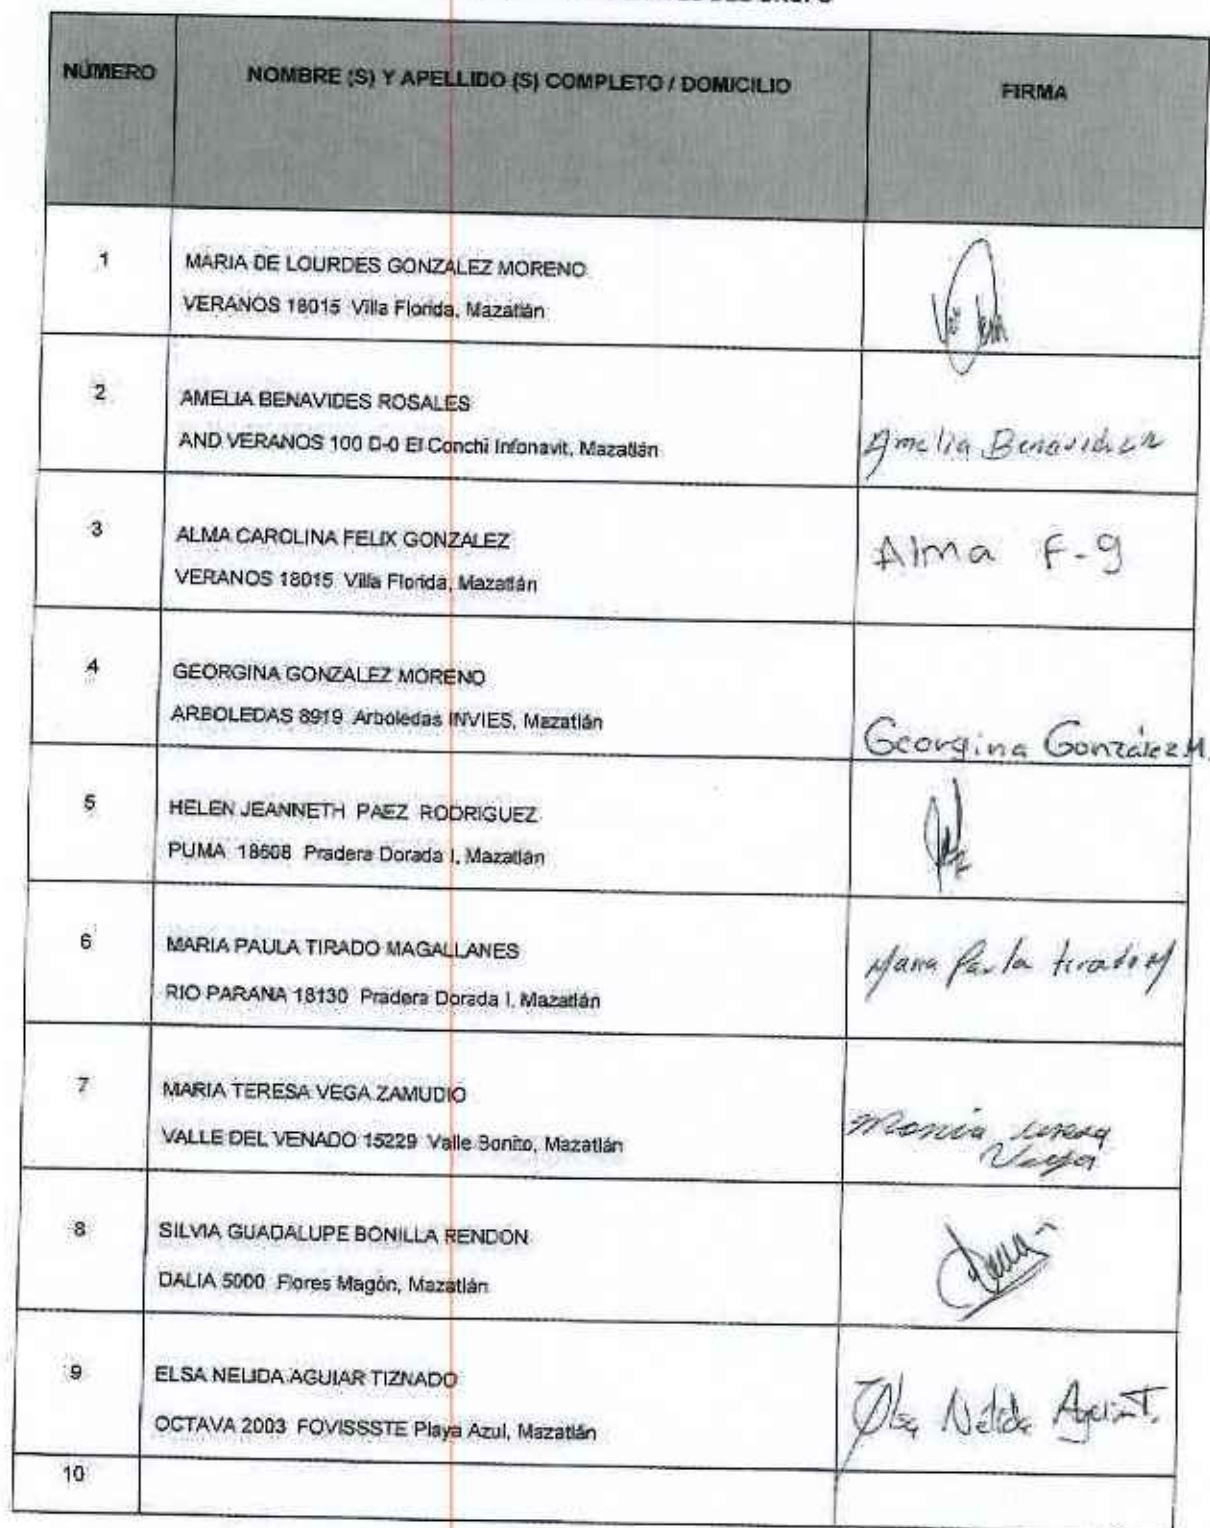 NÚMERO NOMBRE (S) Y APELLIDO (S) COMPLETO / DOMICILIO FIRMA
1 MARIA DE LOURDES GONZALEZ MORENO
VERANOS 18015 Villa Florida, Mazatlán
2 AMELIA BENAVIDES ROSALES
AND VERANOS 100 D-0 El Conchi Infonavit, Mazatlán Amelia Benavides R
3 ALMA CAROLINA FELIX GONZALEZ Alma F-g
VERANOS 18015 Villa Florida, Mazatlán
4 GEORGINA GONZALEZ MORENO
ARBOLEDAS 8919 Arboledas INVIES, Mazatlán Georgina González M.
5 HELEN JEANNETH PAEZ RODRIGUEZ
PUMA 18608 Pradera Dorada I, Mazatlán
6 MARIA PAULA TIRADO MAGALLANES Maria Paula tirado M
RIO PARANA 18130 Pradera Dorada I, Mazatlán
7 MARIA TERESA VEGA ZAMUDIO
VALLE DEL VENADO 15229 Valle Bonito, Mazatlán Maria teresa
Vega
8 SILVIA GUADALUPE BONILLA RENDON
DALIA 5000 Flores Magón, Mazatlán
9 ELSA NELIDA AGUIAR TIZNADO Elsa Nelida Aguiar T.
OCTAVA 2003 FOVISSSTE Playa Azul, Mazatlán
10